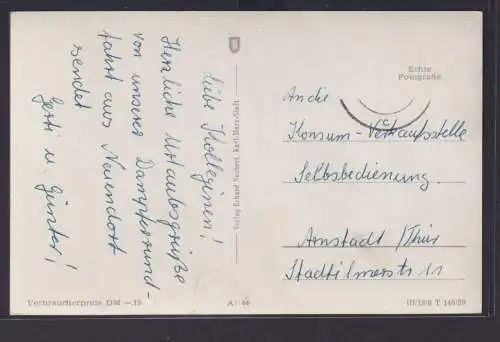 Liebe Kolleginen!
Herzliche Urlaubsgrüße
von unserer Dampferrund-
fahrt aus Neuendorf
sendet
Gerti u. Günter!
Verlag Erhard Neubert, Karl-Marx-Stadt
Echte
Fotografie
An die
Konsum-Verkaufsstelle
Selbstbedienung.
Arnstadt /Thür
Stadtilmerstr 11
Verbraucherpreis DM -.15
A 1
III/18/9 T 146/59